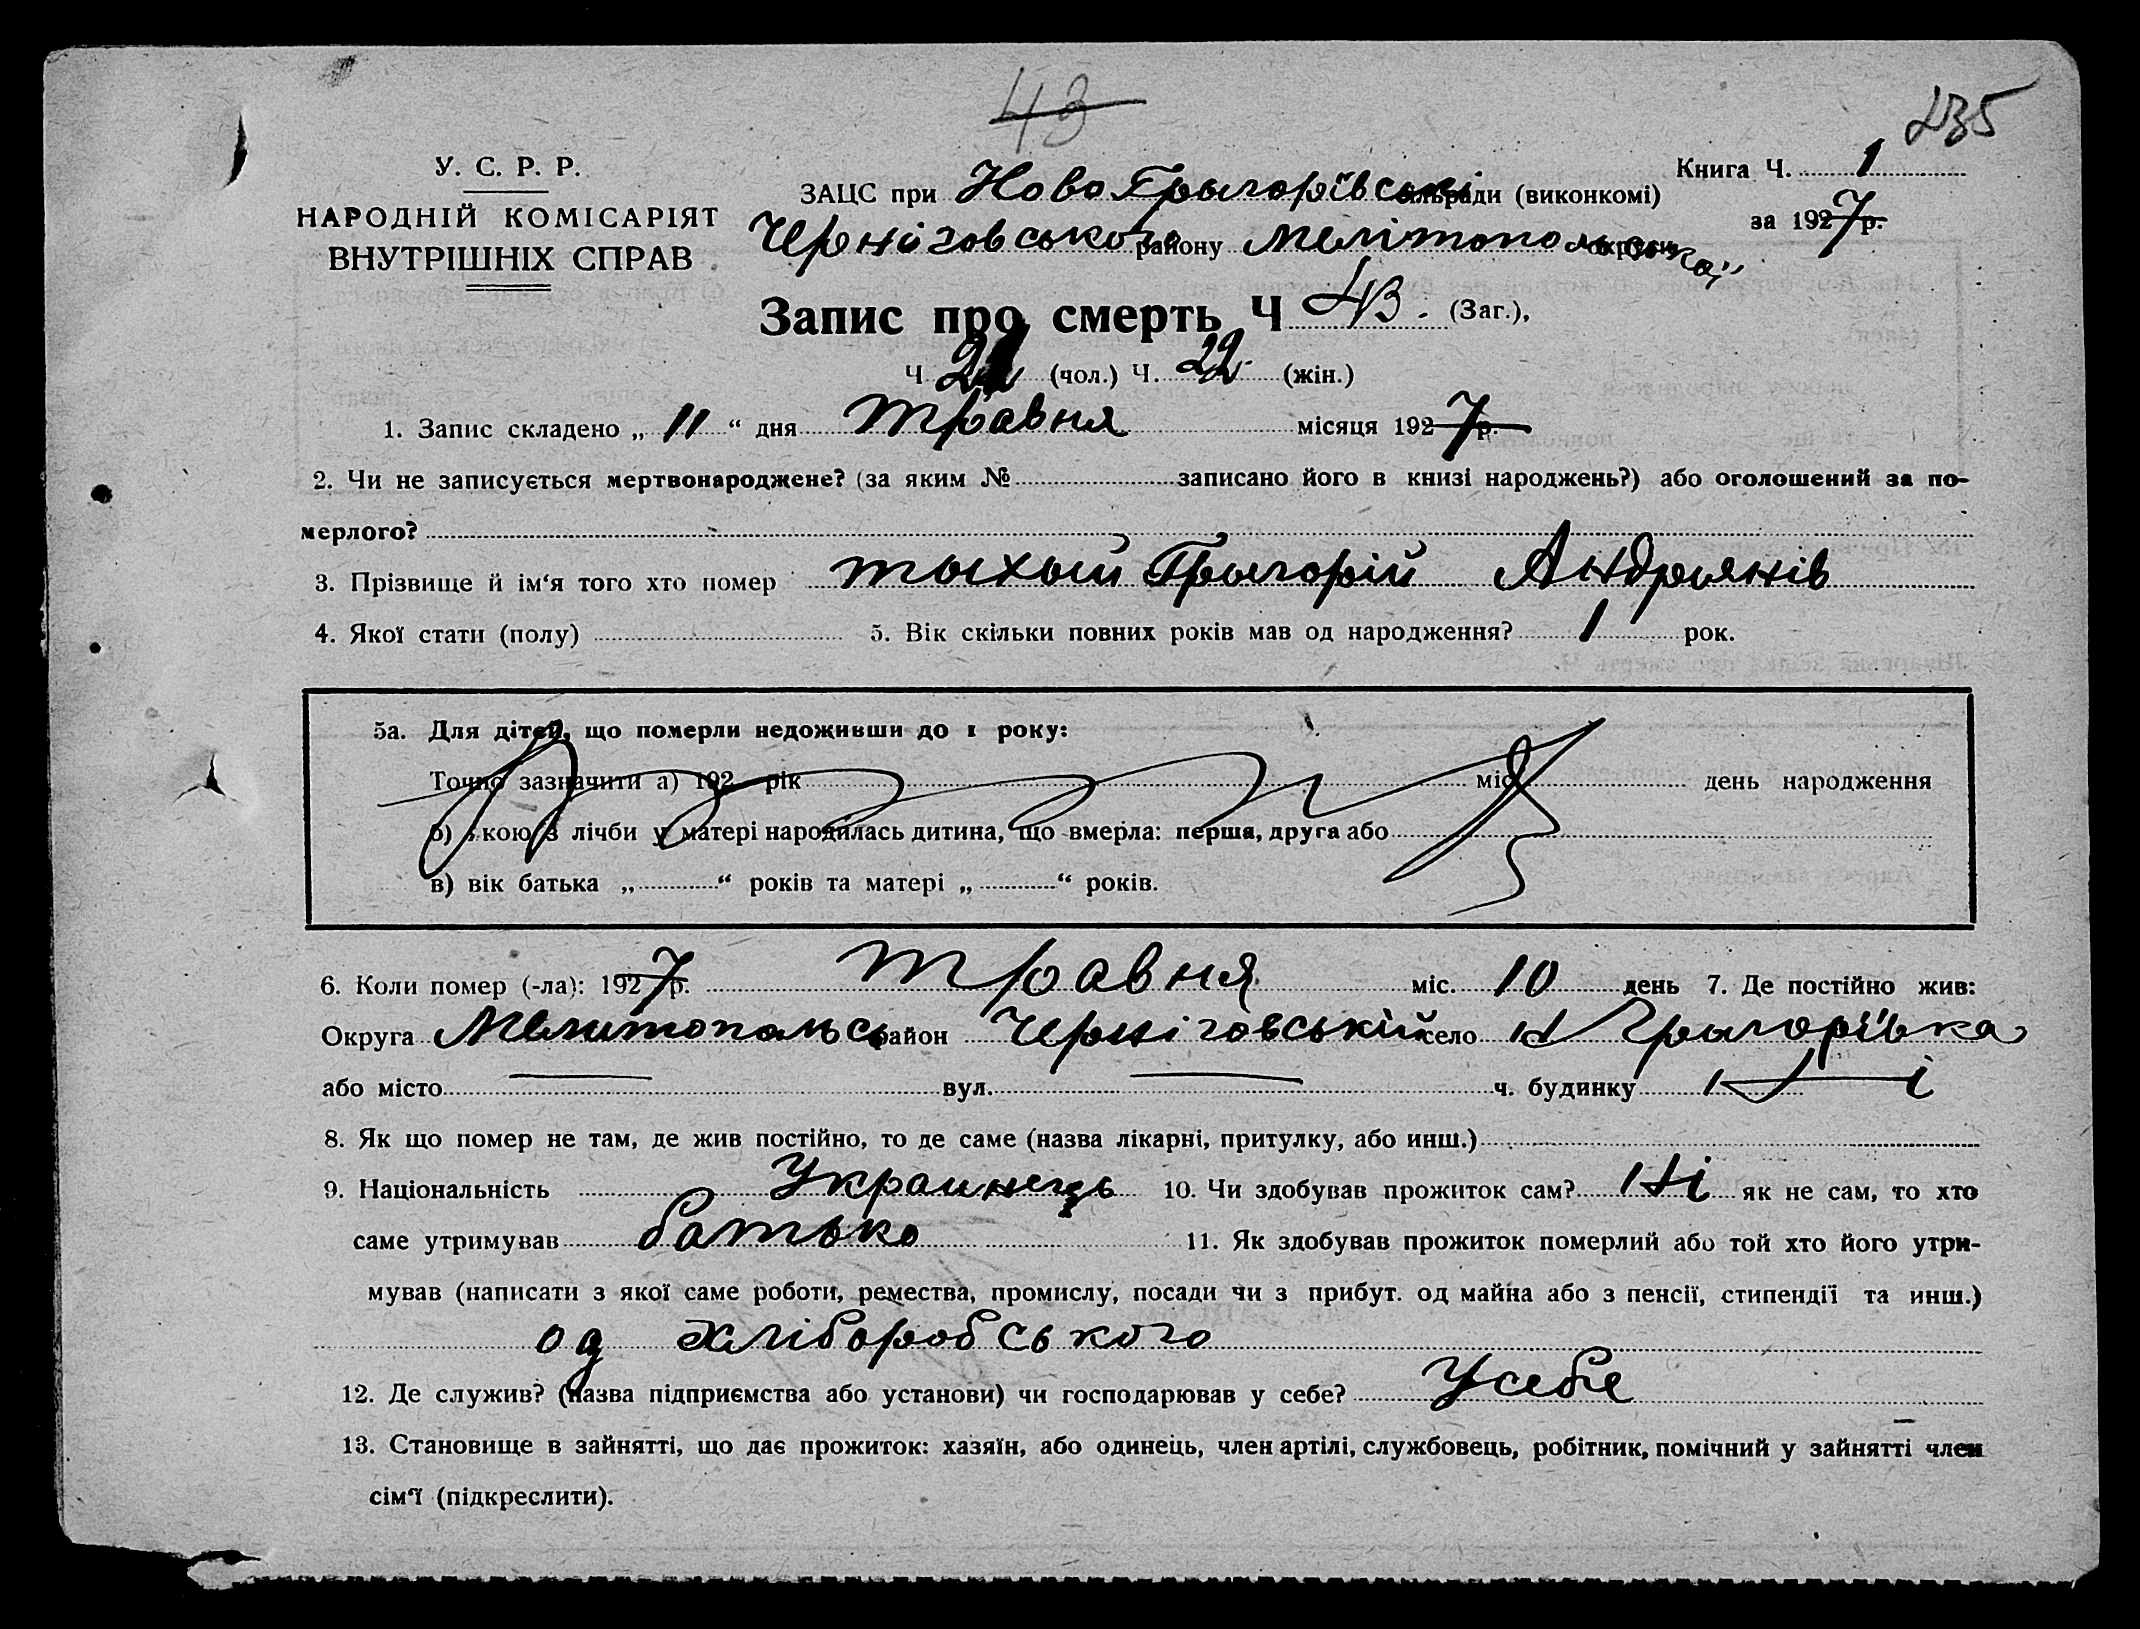 43
235
У. С. Р. Р.
НАРОДНІЙ КОМІСАРІЯТ
ВНУТРІШНІХ СПРАВ
Книга Ч. 1
за 1927 р.
ЗАЦС при Ново Грыгорївські сільради (виконкомі)
Черніговського району Мелітопольської округи
Запис про смерть Ч 43. (Заг.),
Ч. (чол.) Ч. 22 (жін.)
1. Запис складено „ 11 “ дня травня місяця 1927 р.
2. Чи не записується мертвонароджене? (за яким № записано його в книзі народжень?) або оголошений за по-
мерлого?
3. Прізвище й ім‘я того хто помер тыхый Грыгорій Андрыянів
4. Якої стати (полу) 5. Вік скільки повних років мав од народження? 1 рок.
5а. Для дітей, що померли недоживши до 1 року:
Точно зазначити а) 192 рік міс. день народження
б) якою з лічби у матері народилась дитина, що вмерла: перша, друга або
в) вік батька „ “ років та матері „ “ років.
6. Коли помер (-ла): 1927 р. травня міс. 10 день 7. Де постійно жив:
Округа Мелитопольсь район Черніговській село Н Грыгорївка
або місто — вул. — ч. будинку
8. Як що помер не там, де жив постійно, то де саме (назва лікарні, притулку, або инш.)
9. Національність Украинець 10. Чи здобував прожиток сам? Ні як не сам, то хто
саме утримував батько 11. Як здобував прожиток померлий або той хто його утри-
мував (написати з якої саме роботи, ремества, промислу, посади чи з прибут. од майна або з пенсії, стипендії та инш.)
од хліборобського
12. Де служив? (назва підприємства або установи) чи господарював у себе? У себе
13. Становище в зайнятті, що дає прожиток: хазяїн, або одинець, член артілі, службовець, робітник, помічний у зайнятті член
сім‘ї (підкреслити).